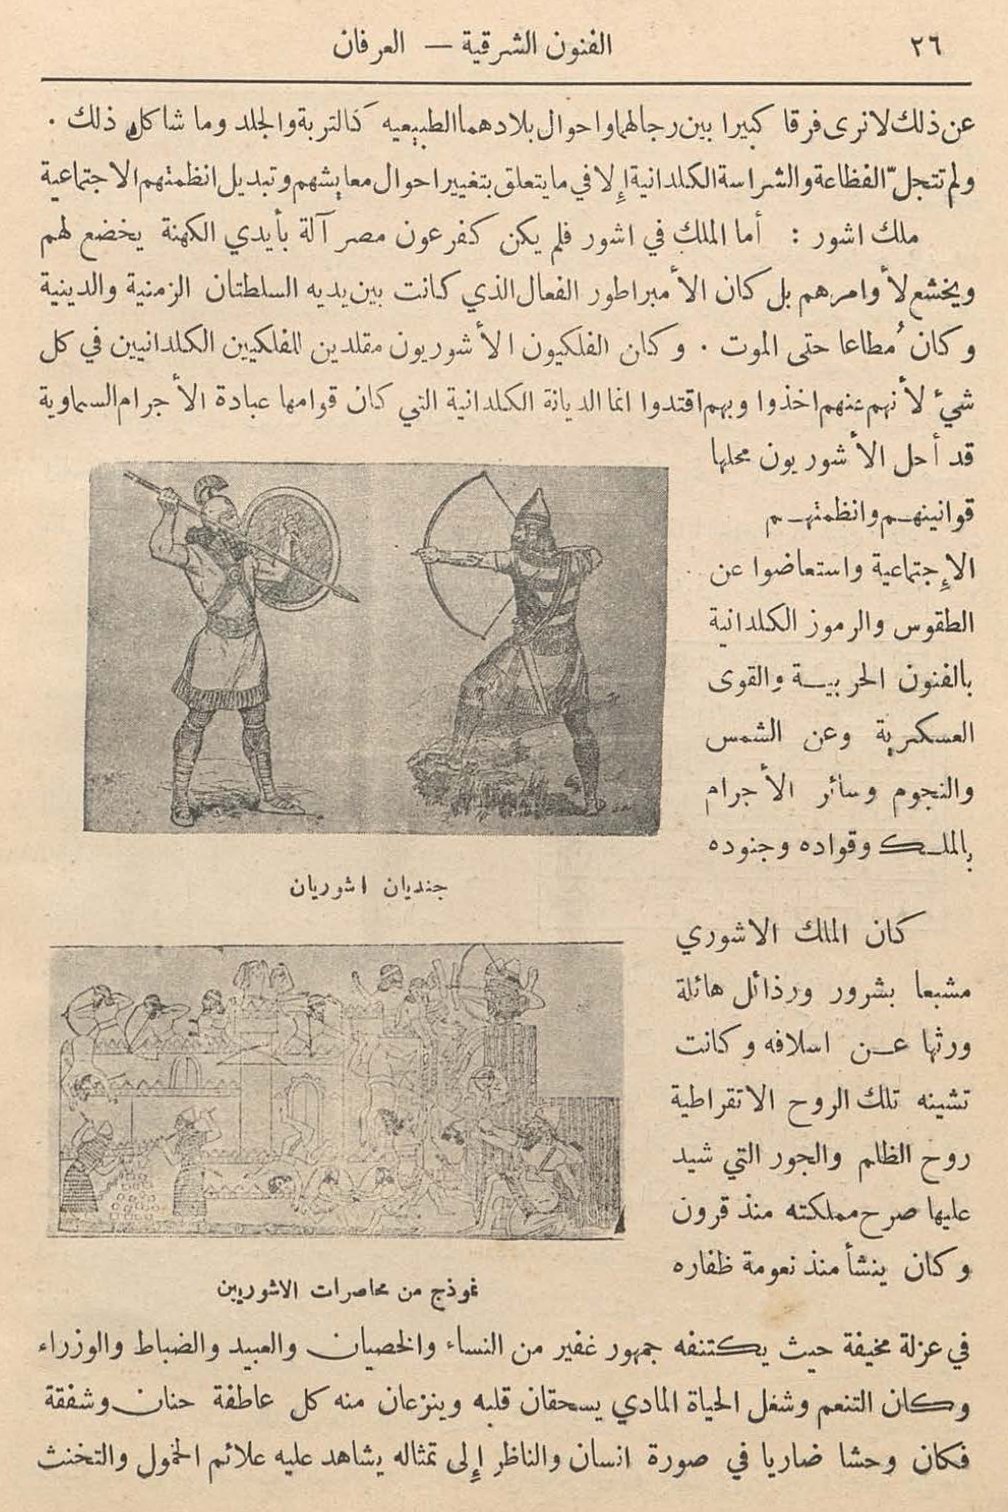 ٢٦
الفنون الشرقية — العرفان
عن ذلك لا نرى فرقا كبيرا بين رجالهما واحوال بلادهما الطبيعيه كالتربة والجلد وما شاكل ذلك .
ولم تتجل الفظاعة والشراسة الكلدانية إلا في ما يتعلق بتغيير احوال معايشهم وتبديل انظمتهم الاجتماعية
ملك اشور : أما الملك في اشور فلم يكن كفرعون مصر آلة بأيدي الكهنة يخضع لهم
ويخشع لأوامرهم بل كان الأمبراطور الفعال الذي كانت بين يديه السلطتان الزمنية والدينية
وكان مُطاعا حتى الموت . وكان الفلكيون الأشوريون مقلدين للفلكيين الكلدانيين في كل
شيء لأنهم عنهم اخذوا وبهم اقتدوا انما الديانة الكلدانية التي كان قوامها عبادة الأجرام السماوية
قد أحل الأشوريون محلها
قوانينهم وانظمتهم
الإجتماعية واستعاضوا عن
الطقوس والرموز الكلدانية
بالفنون الحربية والقوى
العسكرية وعن الشمس
والنجوم وسائر الأجرام
بالملك وقواده وجنوده
جنديان اشوريان
كان الملك الاشوري
مشبعا بشرور ورذائل هائلة
ورثها عن اسلافه وكانت
تشينه تلك الروح الاتقراطية
روح الظلم والجور التي شيد
عليها صرح مملكته منذ قرون
وكان ينشأ منذ نعومة ظفاره
نموذج من محاصرات الاشوريين
في عزلة مخيفة حيث يكتنفه جمهور غفير من النساء والخصيان والعبيد والضباط والوزراء
وكان التنعم وشغل الحياة المادي يسحقان قلبه وينزعان منه كل عاطفة حنان وشفقة
فكان وحشا ضاريا في صورة انسان والناظر إلى تمثاله يشاهد عليه علائم الخمول والتخنث